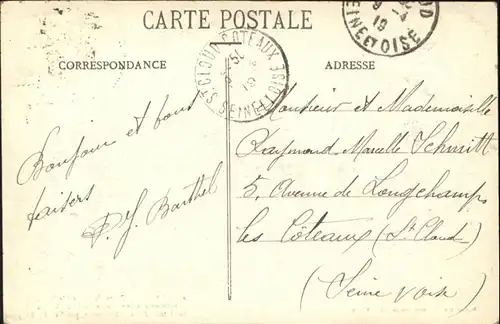 CARTE POSTALE
CORRESPONDANCE
ADRESSE
ST CLOUD COTEAUX
SEINE ET OISE
19
SEINE ET OISE
Bonjour et bons
baisers
P. J. Barthel
Monsieur et Mademoiselle
Raymond Marcelle Schmitt
5, Avenue de Longchamps
les Côteaux (St Cloud)
(Seine & Oise)